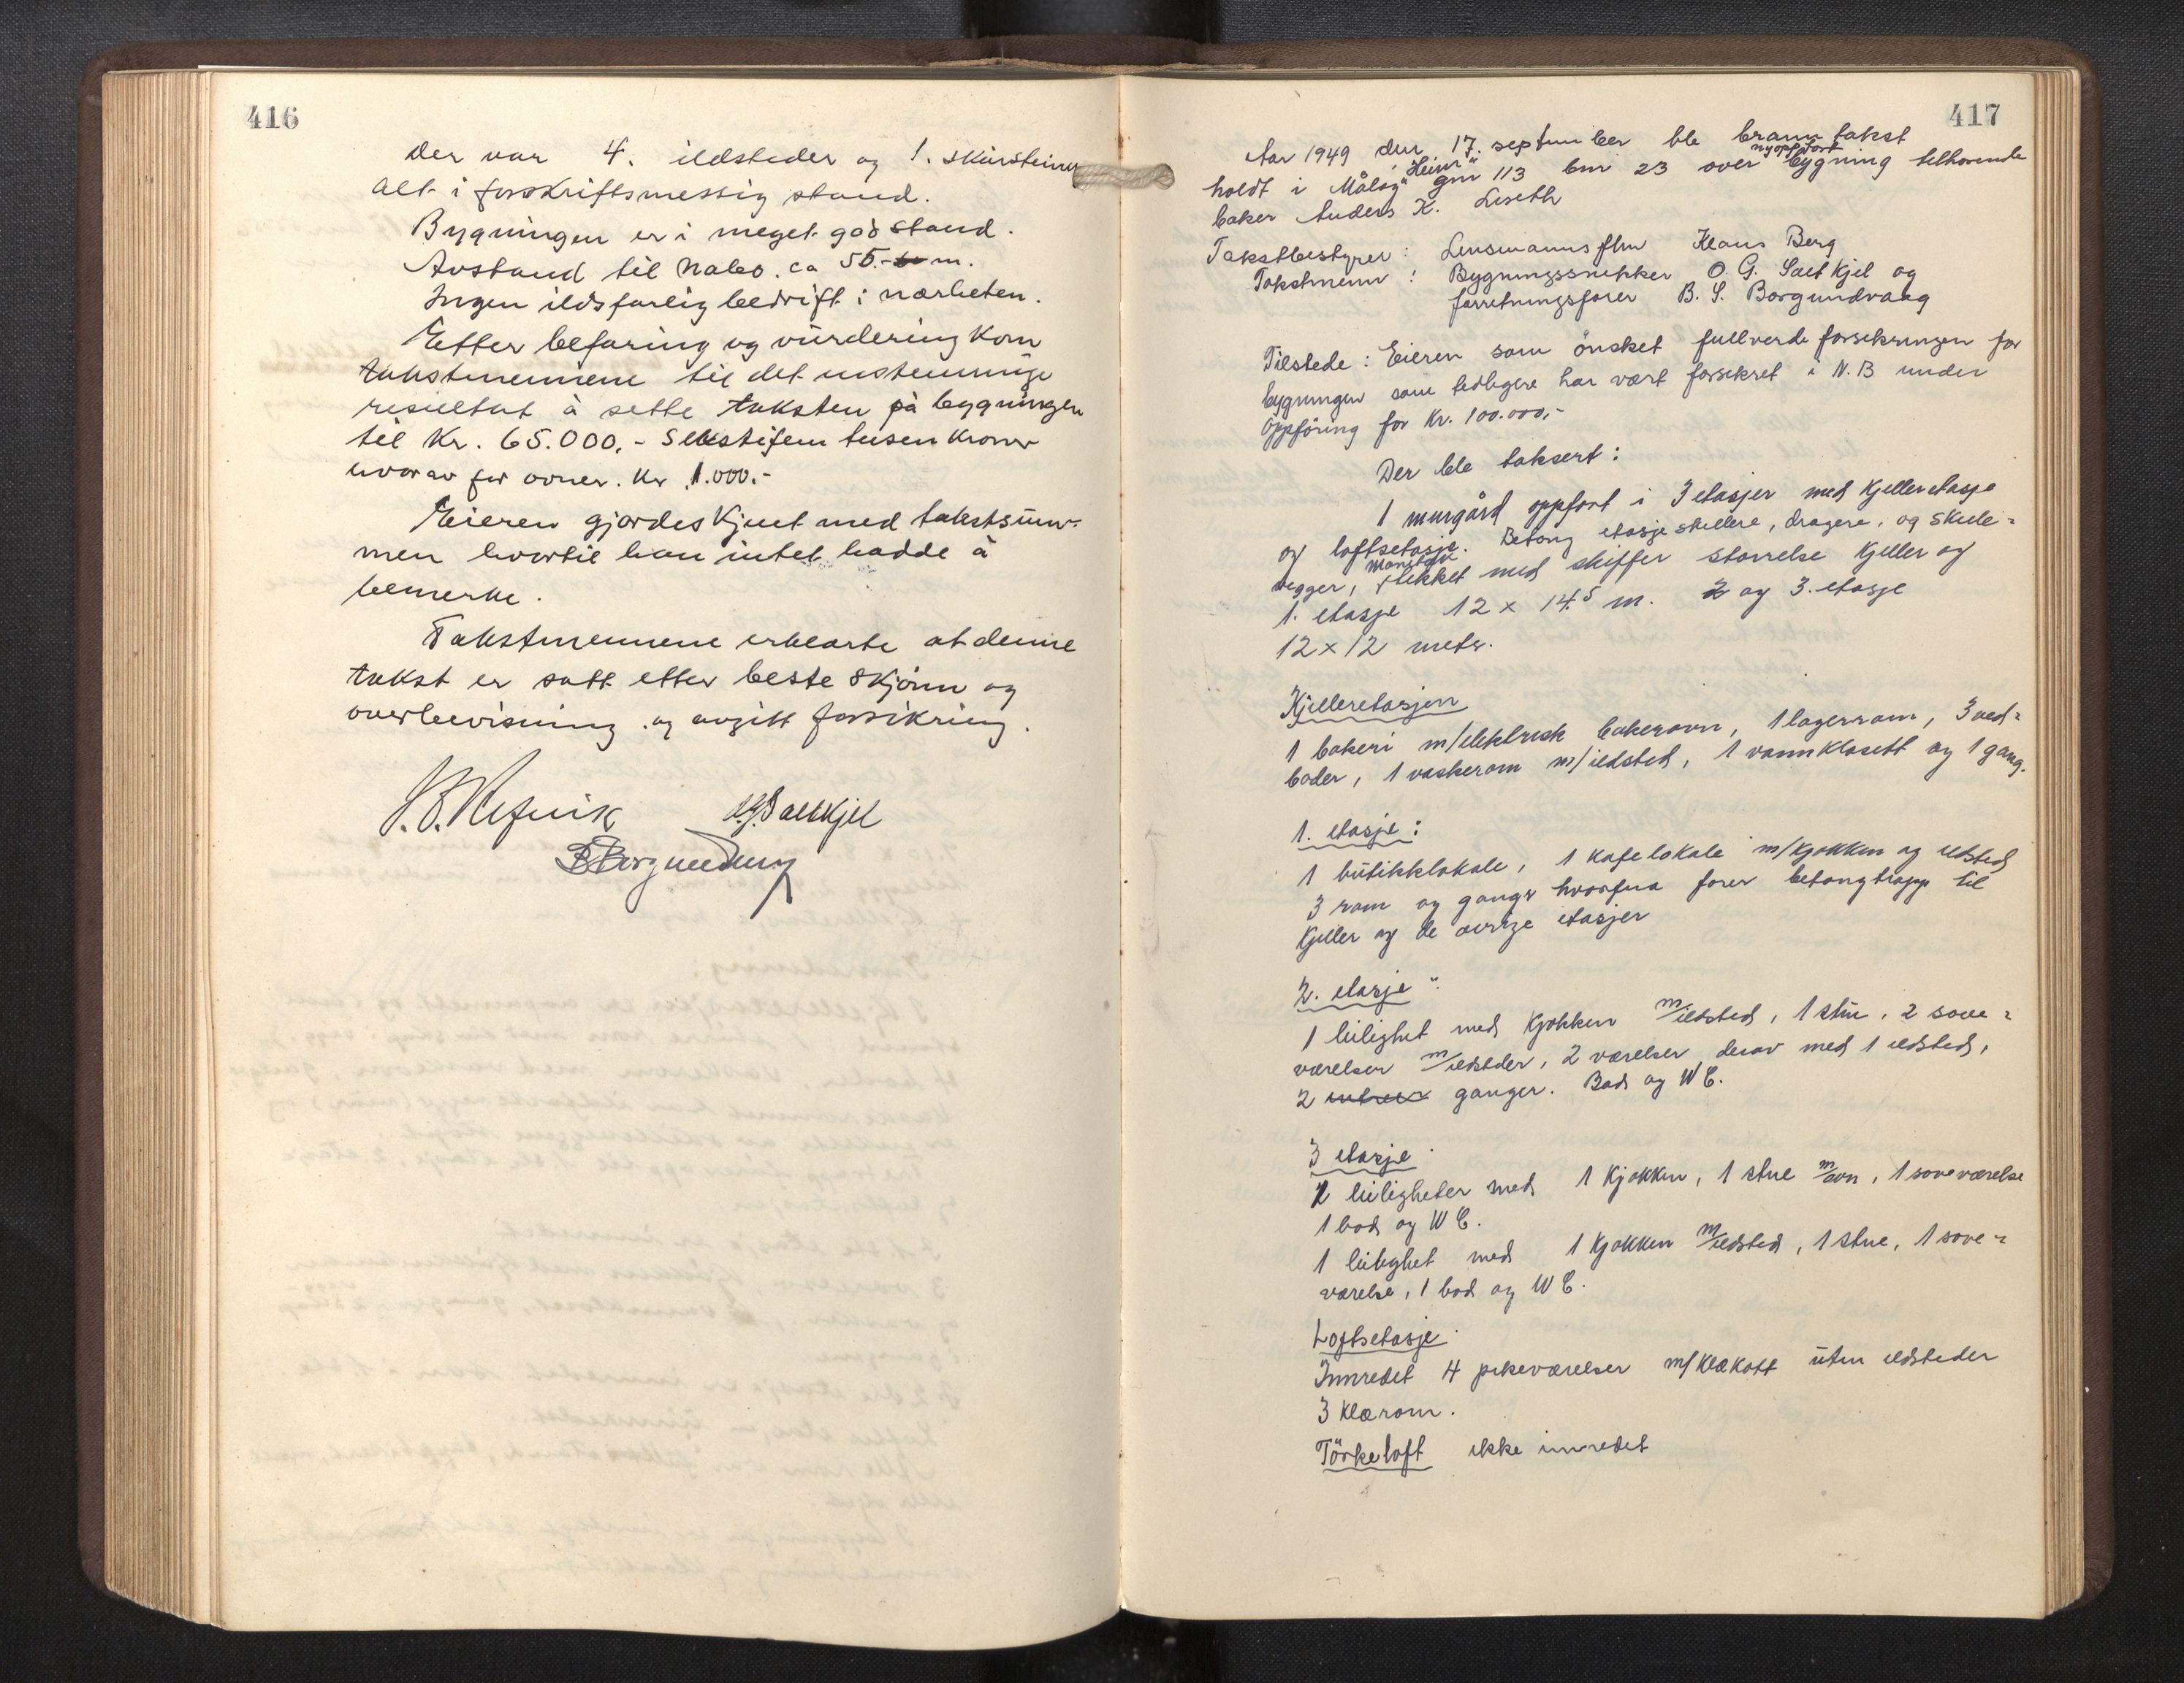 416
Der var 4. ildsteder og 1. skursteiner
alt i forskriftsmessig stand.
Bygningen er i meget god stand.
Avstand til nabo. ca 50.- m.
Ingen ildsfarlig bedrift i nærheten.
Etter befaring og vürdering kom
takstmennene til det enstemmige
resultat å sette taksten på bygningen
til Kr. 65.000,- Sekstifem tusen kroner
hvorav for ovner. Kr. 1.000.-
Eieren gjordes kjent med takstsüm-
men hvortil han intet hadde å
bemerke.
Takstmennene erklærte at denne
takst er satt etter beste skjönn og
overbevisning og avgitt forsikring.
O.G. Saltkjel
B S Borgundvåg
417
Aar 1949 den 17. september ble branntakst
holdt i Måløy "Heim" gnr 113 bnr 23 over nyoppført bygning tilhørende
baker Anders K. Liseth
Takstbestyrer: Lensmannsflm Klaus Berg
Takstmenn: Bygningssnekker O. G. Saltkjel og
forretningsfører B. S. Borgundvaag
Tilstede: Eieren som önsket fullverdiforsikringen for
bygningen som tidligere har vært forsikret i N.B under
Oppföring for Kr. 100.000,-
Der ble taksert:
1 murgård oppført i 3 etasjer med kjelleretasje
og loftsetasje. Betong etasjeskillere, dragere, og skille=
vegger, tekket med skiffer størrelse kjeller og
1. etasje 12 x 14.5 m. 2 og 3. etasje
12 x 12 meter.
Kjelleretasjen
1 bakeri m/elektrisk bakerovn, 1 lagerrom, 3 ved=
boder, 1 vaskerom m/ildsted, 1 vannklosett og 1 gang.
1. etasje:
1 bütikklokale, 1 kafelokale m/kjøkken og ildsted
3 rom og gangr hvorfra fører betongtrapp til
kjeller og de øvrige etasjer
2. etasje:
1 leilighet med kjøkken m/ildsted, 1 stüe, 2 sove=
værelser m/ildsteder, 2 værelser derav med 1 ildsted,
2 entreer ganger. Bad og WC.
3 etasje
2 leiligheter med 1 kjøkken, 1 stue m/ovn, 1 soveværelse
1 bod og WC.
1 leilighet med 1 kjøkken m/ildsted, 1 stue, 1 sove=
værelse, 1 bod og WC.
Loftsetasje
Innredet 4 pikeværelser m/klekott üten ildsteder
3 klærom.
Törkeloft ikke innredet